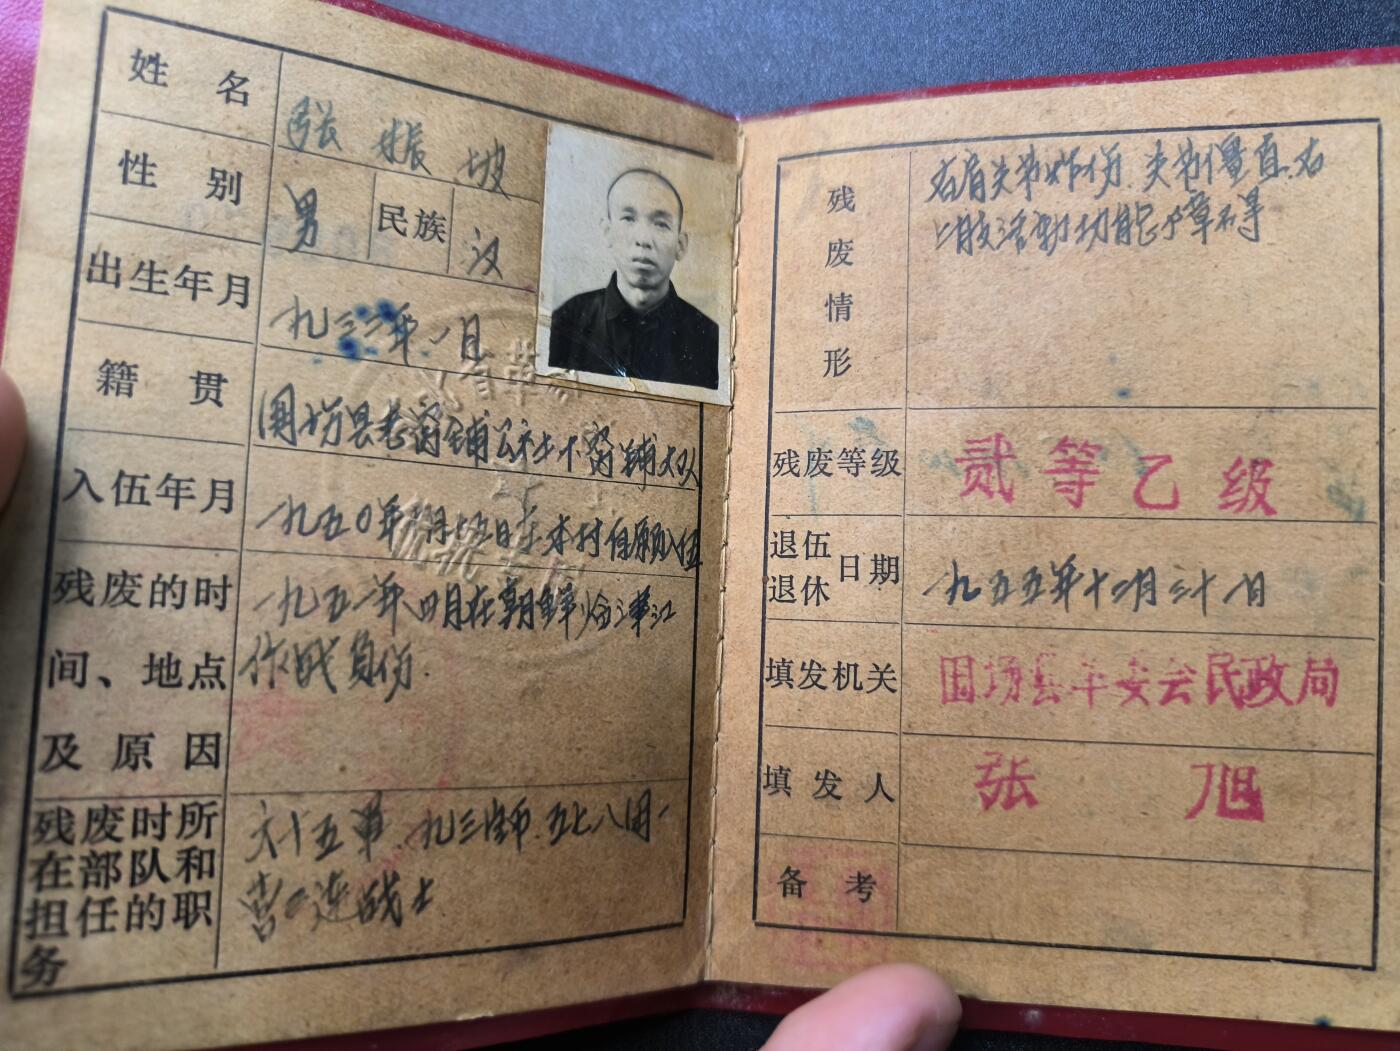 姓名 张振坡
性别 男 民族 汉
出生年月 一九三二年一月
籍贯 围场县老窝铺公社下窝铺大队
入伍年月 一九五〇年 月十五日在本村自愿入伍
残废的时间、地点及原因 一九五一年四月在朝鲜 江
作战负伤.
残废时所在部队和担任的职务 六十五军.一九三师.五七八团一
营 连战士
残废情形 右肩关节炸伤.关节僵直.右
上肢活动功能障碍
残废等级 贰等乙级
退伍退休日期 一九五五年十二月三十一日
填发机关 围场县革委会民政局
填发人 张旭
备考